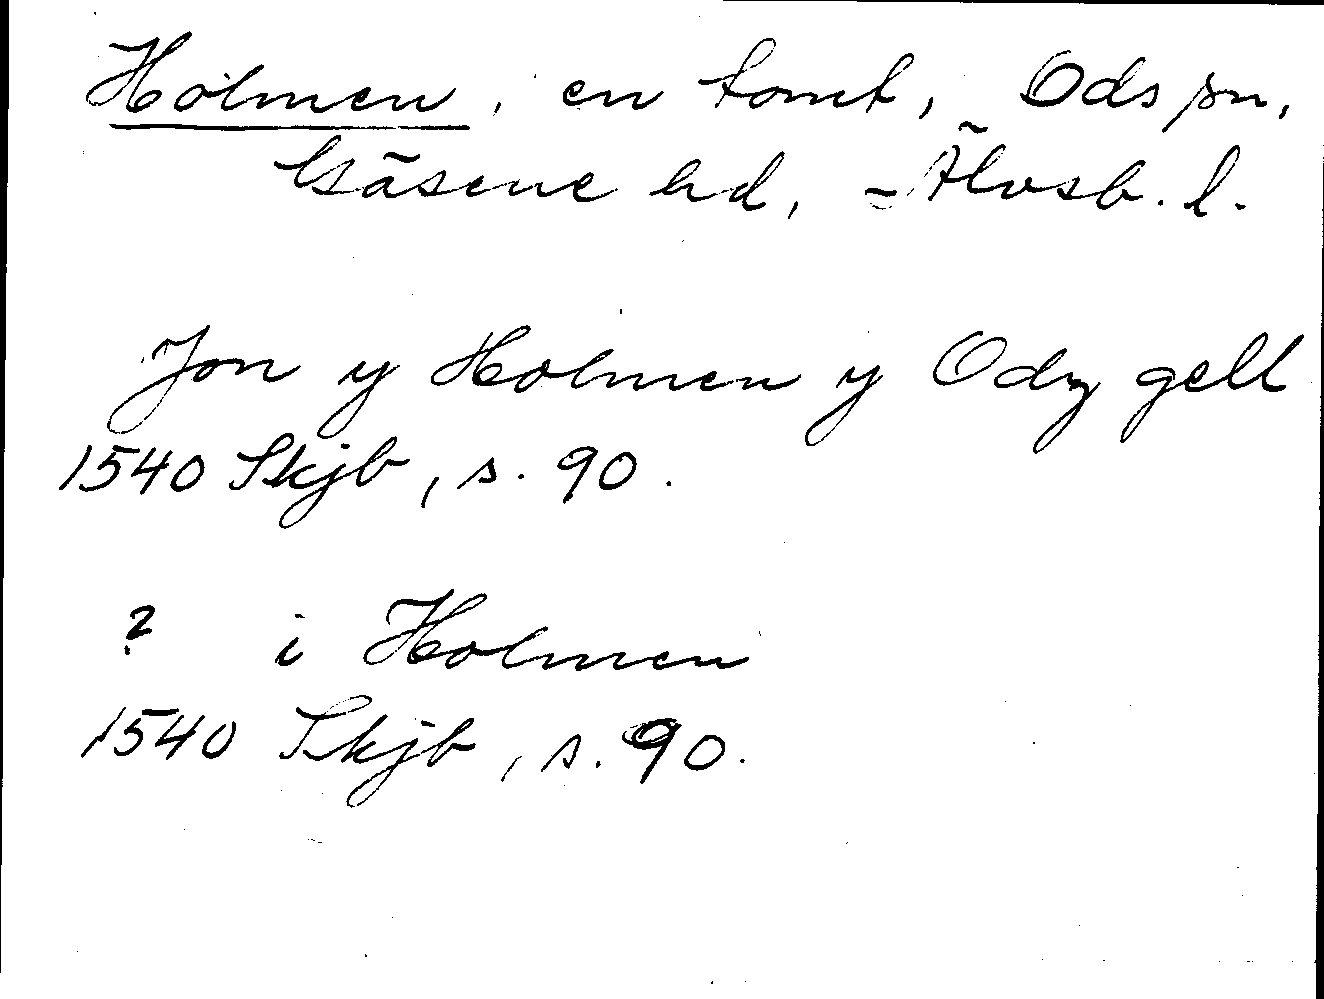 Holmen, en tomt, Ods sn,
Gäsene hd, Älvsb. l.
Jon y Holmen y Odz gell
1540 Skjb, s. 90.
? i Holmen
1540 Skjb, s. 90.